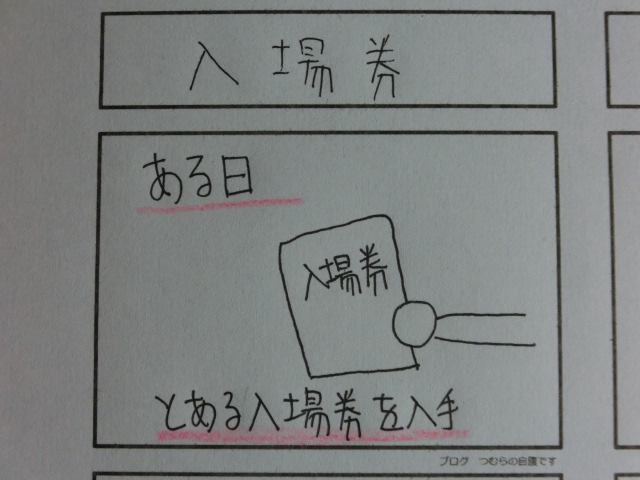 入場券
ある日
入場券
とある入場券を入手
ブログ つむらの自腹です